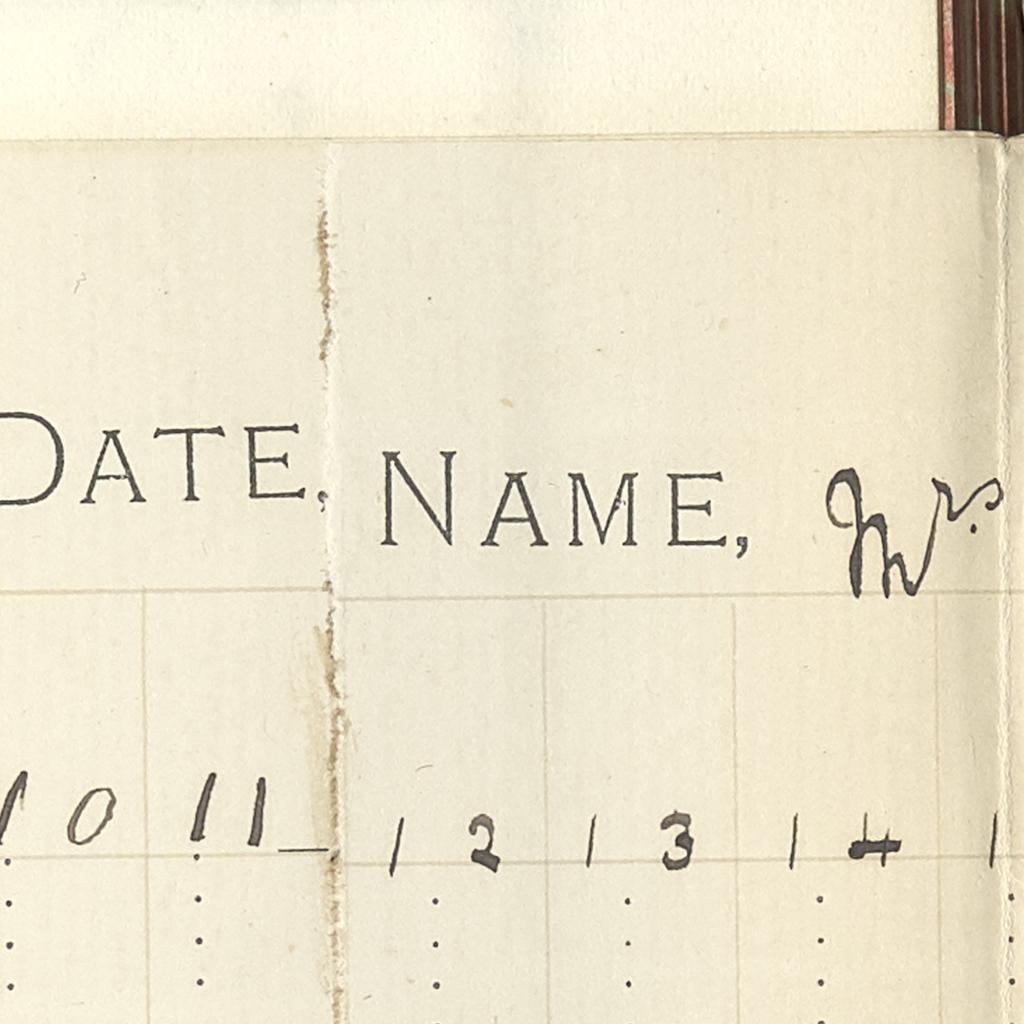 DATE, NAME, Mrs.
10 11 12 13 14 1